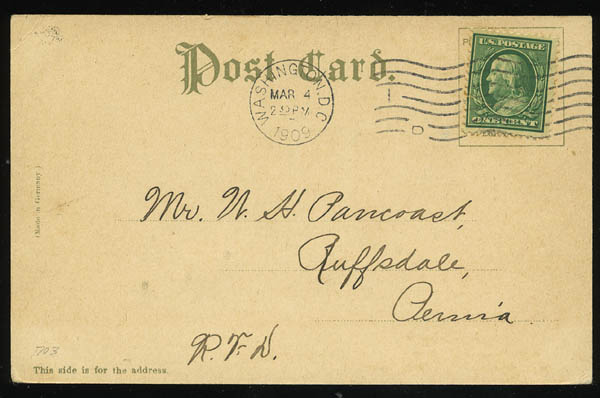 Post Card.
WASHINGTON, D.C.
MAR 4
1909
U.S. POSTAGE
ONE CENT
(Made in Germany.)
Mr. W. H. Pancoast,
Ruffsdale,
Penna.
R. F. D.
This side is for the address.